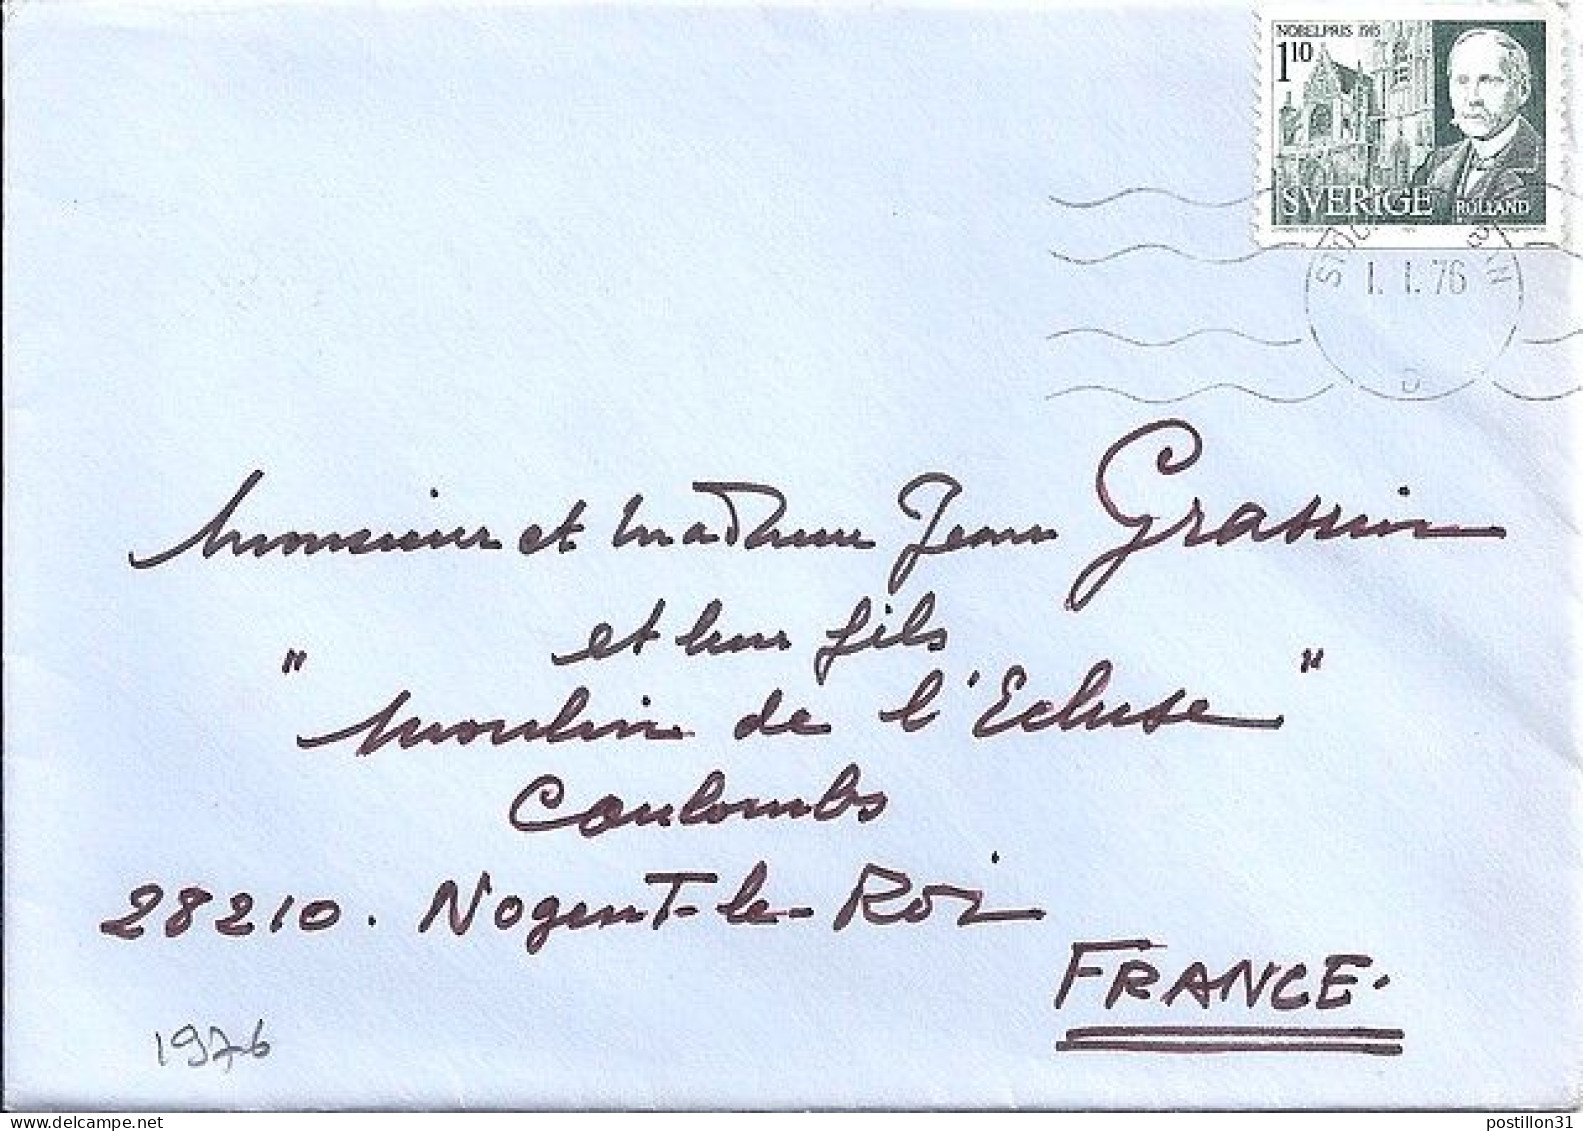 NOBELPRIS 1915
1 10
SVERIGE ROLLAND
1. 1. 76
Monsieur et Madame Jean Grassin
et leur fils
" Moulin de l'Ecluse "
Coulombs
28210. Nogent-le-Roi
FRANCE.
1976
postillon31